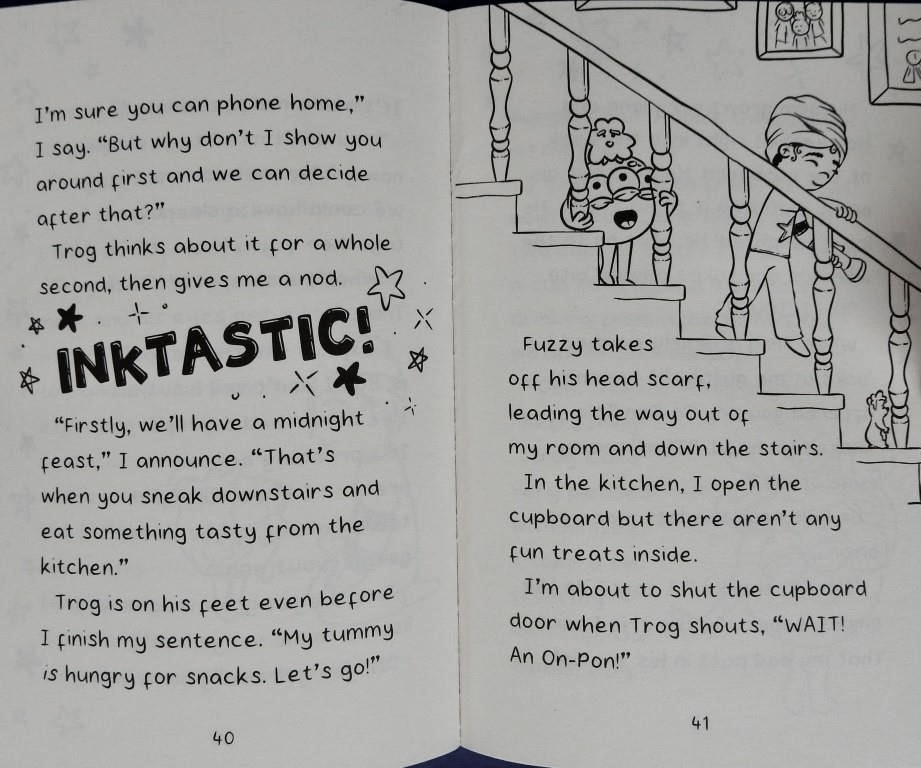 I'm sure you can phone home,"
I say. "But why don't I show you
around first and we can decide
after that?"
Trog thinks about it for a whole
second, then gives me a nod.
INKTASTIC!
"Firstly, we'll have a midnight
feast," I announce. "That's
when you sneak downstairs and
eat something tasty from the
kitchen."
Trog is on his feet even before
I finish my sentence. "My tummy
is hungry for snacks. Let's go!"
40
Fuzzy takes
off his head scarf,
leading the way out of
my room and down the stairs.
In the kitchen, I open the
cupboard but there aren't any
fun treats inside.
I'm about to shut the cupboard
door when Trog shouts, "WAIT!
An On-Pon!"
41